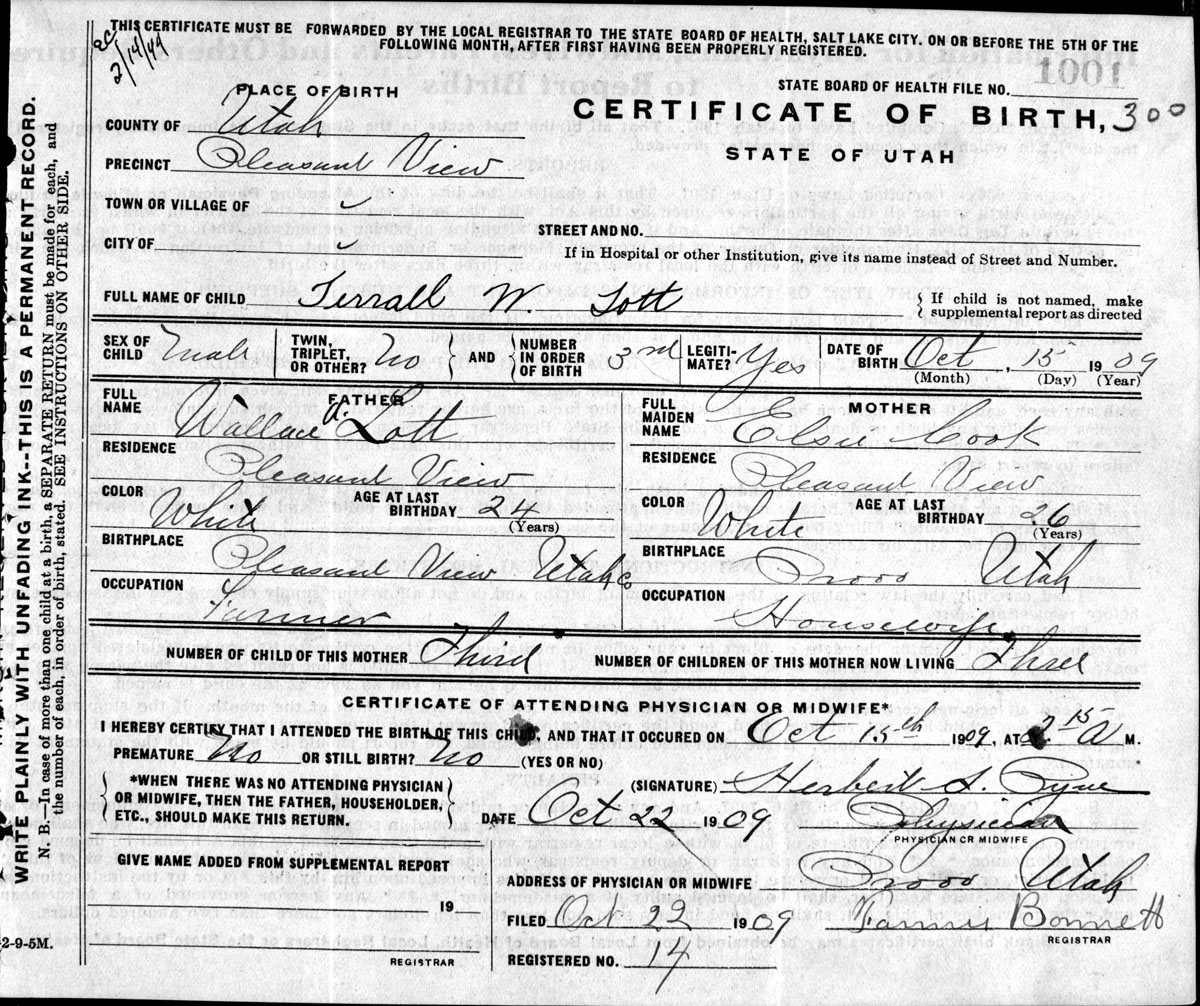 THIS CERTIFICATE MUST BE FORWARDED BY THE LOCAL REGISTRAR TO THE STATE BOARD OF HEALTH, SALT LAKE CITY. ON OR BEFORE THE 5TH OF THE
FOLLOWING MONTH, AFTER FIRST HAVING BEEN PROPERLY REGISTERED.
2/14/49
1001
STATE BOARD OF HEALTH FILE NO.
PLACE OF BIRTH
CERTIFICATE OF BIRTH, 300
COUNTY OF Utah
STATE OF UTAH
PRECINCT Pleasant View
TOWN OR VILLAGE OF ✓
STREET AND NO.
CITY OF ✓
If in Hospital or other Institution, give its name instead of Street and Number.
FULL NAME OF CHILD Terrall W. Lott
{ If child is not named, make
supplemental report as directed
SEX OF CHILD Male TWIN, TRIPLET, OR OTHER? No { AND } NUMBER IN ORDER OF BIRTH 3rd LEGITI-MATE? Yes DATE OF BIRTH Oct, 15 1909
(Month) (Day) (Year)
FATHER
FULL NAME Wallace A. Lott
RESIDENCE Pleasant View
COLOR White AGE AT LAST BIRTHDAY 24
(Years)
BIRTHPLACE Pleasant View Utah Co
OCCUPATION Farmer
MOTHER
FULL MAIDEN NAME Elsie Cook
RESIDENCE Pleasant View
COLOR White AGE AT LAST BIRTHDAY 26
(Years)
BIRTHPLACE Provo Utah
OCCUPATION Housewife
NUMBER OF CHILD OF THIS MOTHER Third NUMBER OF CHILDREN OF THIS MOTHER NOW LIVING Three
CERTIFICATE OF ATTENDING PHYSICIAN OR MIDWIFE*
I HEREBY CERTIFY THAT I ATTENDED THE BIRTH OF THIS CHILD, AND THAT IT OCCURED ON Oct 15th 1909, AT 2 15 A M.
PREMATURE No OR STILL BIRTH? No (YES OR NO)
{ *WHEN THERE WAS NO ATTENDING PHYSICIAN
OR MIDWIFE, THEN THE FATHER, HOUSEHOLDER,
ETC., SHOULD MAKE THIS RETURN. }
(SIGNATURE) Herbert S. Pyne
DATE Oct 22 1909
Physician
PHYSICIAN OR MIDWIFE
GIVE NAME ADDED FROM SUPPLEMENTAL REPORT
ADDRESS OF PHYSICIAN OR MIDWIFE Provo Utah
19
FILED Oct 22 1909 Bonnett
REGISTRAR
REGISTRAR
REGISTERED NO. 14
WRITE PLAINLY WITH UNFADING INK--THIS IS A PERMANENT RECORD.
N. B.—In case of more than one child at a birth, a SEPARATE RETURN must be made for each, and
the number of each, in order of birth, stated. SEE INSTRUCTIONS ON OTHER SIDE.
2-9-5M.